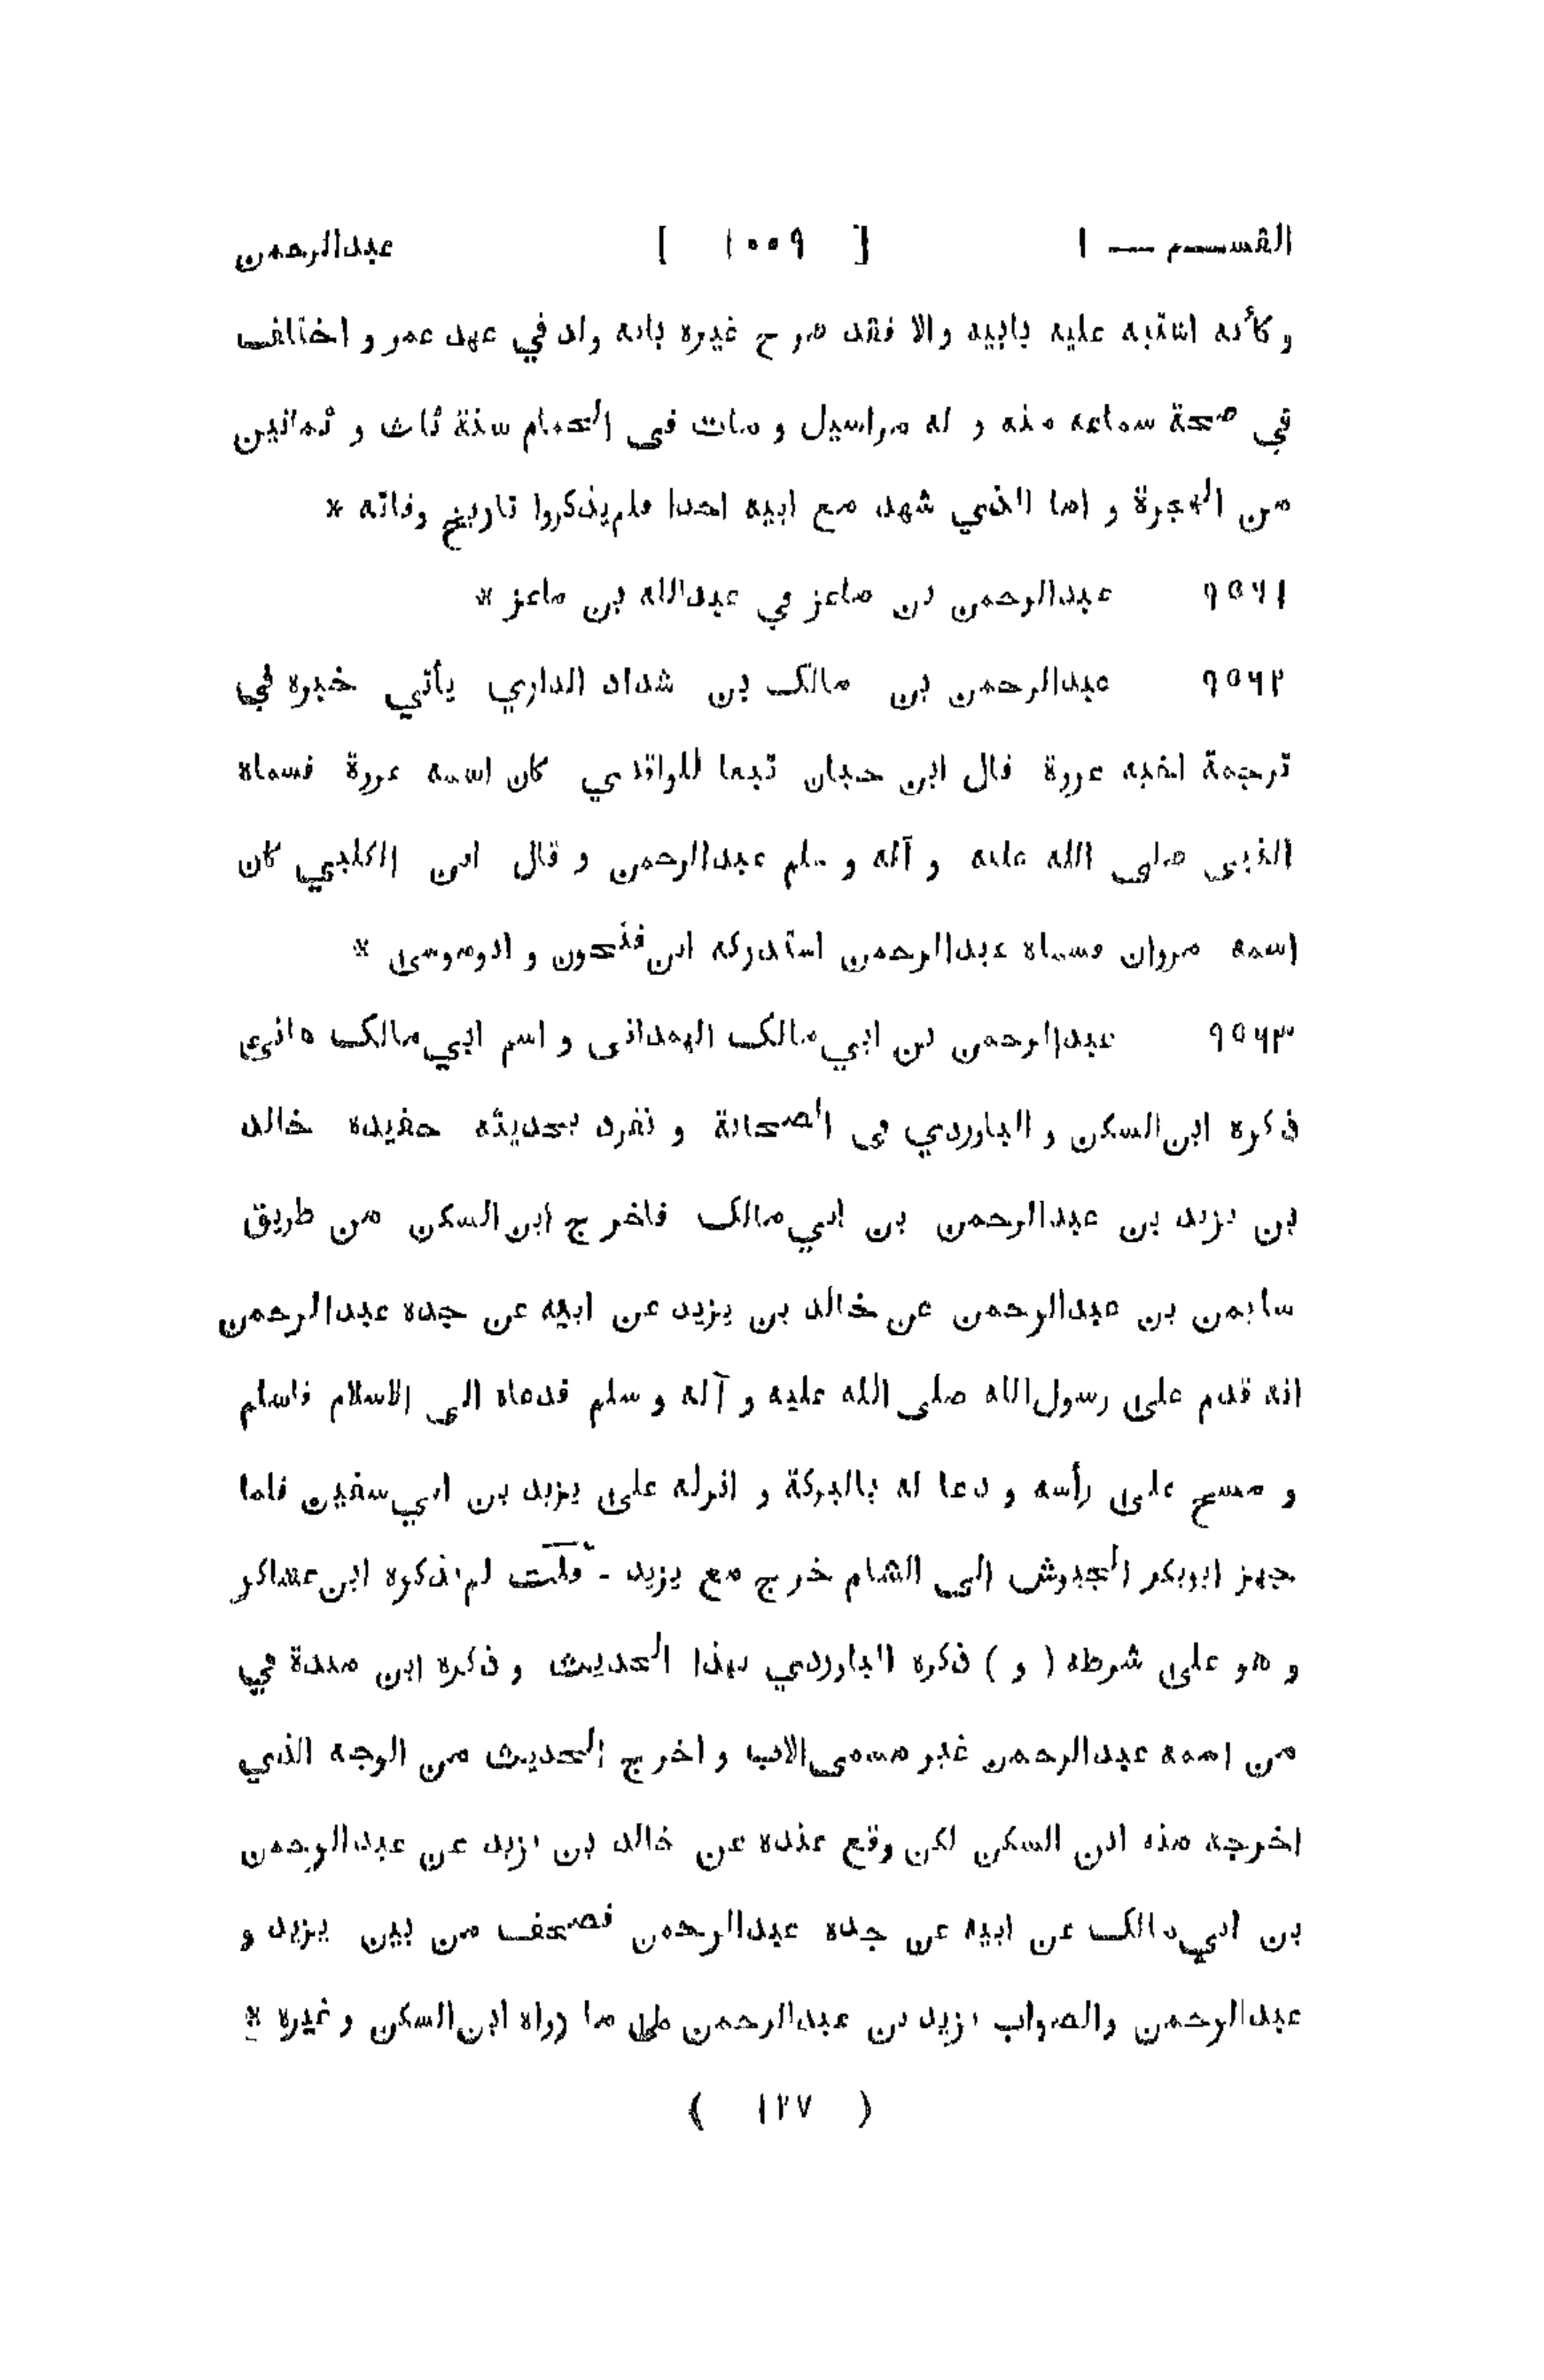 القســـم — ١ [ ١٠٠٩ ] عبدالرحمن
و كأنه اشتبه عليه بابيه والا فقد صرح غيره بانه ولد في عهد عمر و اختلف
في صحة سماعه منه و له مراسيل و مات في الحمام سنة ثلث و ثمانين
من الهجرة و اما الذي شهد مع ابيه احدا فلم يذكروا تاريخ وفاته *
٩٥٦١ عبدالرحمن بن ماعز في عبدالله بن ماعز *
٩٥٦٢ عبدالرحمن بن مالك بن شداد الداري يأتي خبره في
ترجمة اخيه عروة قال ابن حبان تبعا للواقدي كان اسمه عروة فسماه
النبي صلى الله عليه و آله و سلم عبدالرحمن و قال ابن الكلبي كان
اسمه مروان فسماه عبدالرحمن استدركه ابن فتحون و ابوموسى *
٩٥٦٣ عبدالرحمن بن ابي مالك الهمدانى و اسم ابي مالك هانئ
ذكره ابن السكن و الباوردي في الصحابة و تفرد بحديثه حفيده خالد
بن يزيد بن عبدالرحمن بن ابي مالك فاخرج ابن السكن من طريق
سليمن بن عبدالرحمن عن خالد بن يزيد عن ابيه عن جده عبدالرحمن
انه قدم على رسول الله صلى الله عليه و آله و سلم فدعاه الى الاسلام فاسلم
و مسح على رأسه و دعا له بالبركة و انزله على يزيد بن ابي سفين فلما
جهز ابوبكر الجيوش الى الشام خرج مع يزيد - قلت لم يذكره ابن عساكر
و هو على شرطه ( و ) ذكره الباوردي بهذا الحديث و ذكره ابن مندة في
من اسمه عبدالرحمن غير مسمى الاب و اخرج الحديث من الوجه الذي
اخرجه منه ابن السكن لكن وقع عنده عن خالد بن يزيد عن عبدالرحمن
بن ابي مالك عن ابيه عن جده عبدالرحمن فصحف من بين يزيد و
عبدالرحمن والصواب يزيد بن عبدالرحمن على ما رواه ابن السكن و غيره *
( ١٢٧ )